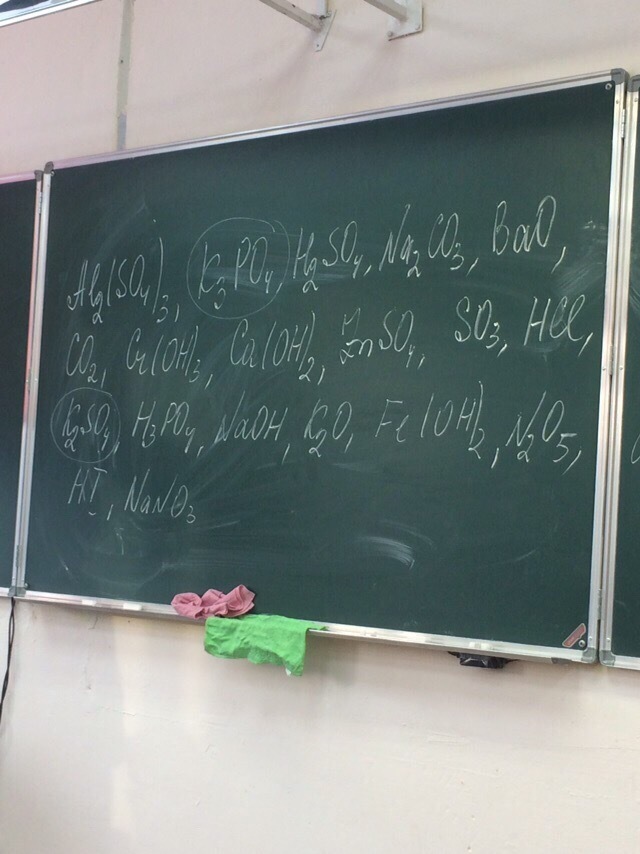 Al₂(SO₄)₃, K₃PO₄, H₂SO₄, Na₂CO₃, BaO,
CO₂, Cr(OH)₃, Ca(OH)₂, ZnSO₄, SO₃, HCl,
K₂SO₄, H₃PO₄, NaOH, K₂O, Fe(OH)₂, N₂O₅,
HI, NaNO₃